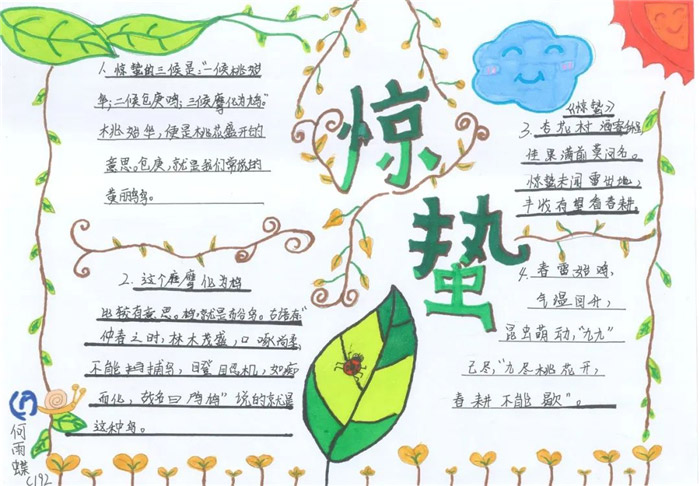 1、惊蛰的三候是:"一候桃始
华;二候仓庚鸣;三候鹰化为鸠。"
桃始华,便是桃花盛开的
意思。仓庚,就是我们常说的
黄鹂鸟。
惊
蛰
《惊蛰》
3、杏花村 酒
佳果满前莫问名。
惊蛰未闻雷出地,
丰收有望看春耕。
2、这个鹰化为鸠
比较有意思。鸠就是布谷鸟。古语有"
仲春之时,林木茂盛,口啄尚柔,
不能捕鸟,瞪目 饥,如痴
而化,故名曰鸤鸠"说的就是
这种鸟。
4、春雷始鸣,
气温回升,
昆虫萌动,"九九"
已尽,"九尽桃花开,
春耕不能歇"。
何雨蝶
C192